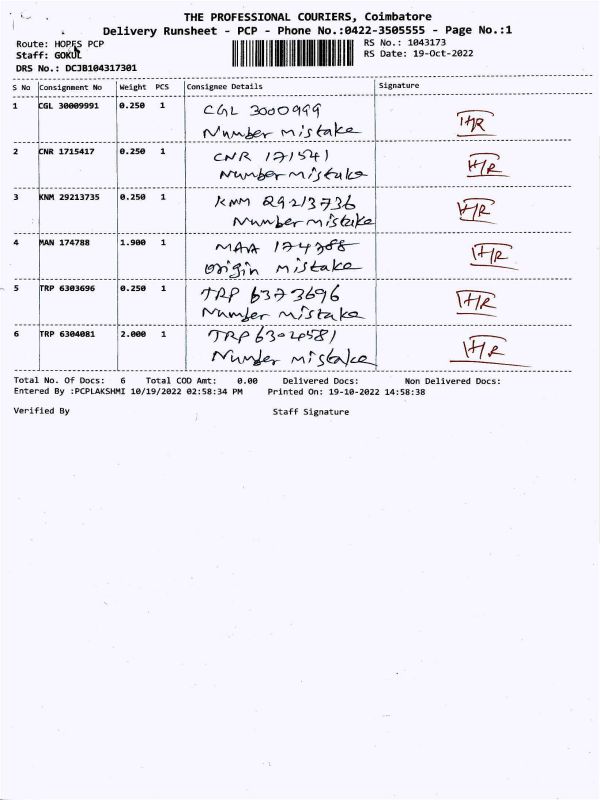 THE PROFESSIONAL COURIERS, Coimbatore
Delivery Runsheet - PCP - Phone No.:0422-3505555 - Page No.:1
Route: HOPES PCP
RS No.: 1043173
Staff: GOKUL
RS Date: 19-Oct-2022
DRS No.: DCJB104317301
S No Consignment No Weight PCS Consignee Details Signature
1 CGL 30009991 0.250 1 CGL 3000999
Number mistake
2 CNR 1715417 0.250 1 CNR 171541
Number mistake
3 KNM 29213735 0.250 1 KNM 29213736
Number mistake
4 MAN 174788 1.900 1 MAA 174788
Origin mistake
5 TRP 6303696 0.250 1 TRP 6373696
Number mistake
6 TRP 6304081 2.000 1 TRP 6304581
Number mistake
Total No. Of Docs: 6 Total COD Amt: 0.00 Delivered Docs: Non Delivered Docs:
Entered By :PCPLAKSHMI 10/19/2022 02:58:34 PM Printed On: 19-10-2022 14:58:38
Verified By Staff Signature